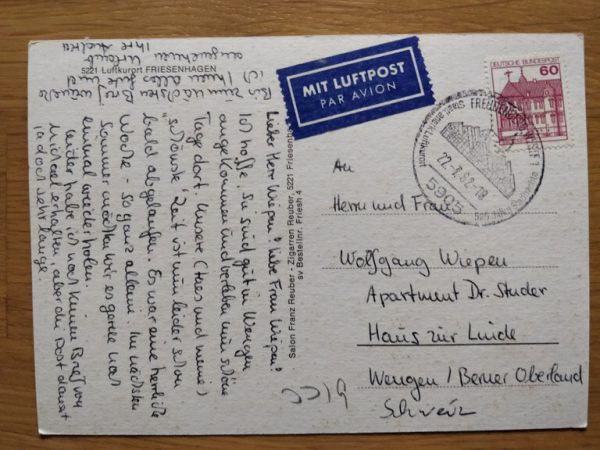 5221 Luftkurort FRIESENHAGEN
Lieber Herr Wiepen! Liebe Frau Wiepen!
Ich hoffe, Sie sind gut in Wengen
angekommen und verleben nun schöne
Tage dort. Unsere ( und meine)
"schönste" Zeit ist nun leider schon
bald abgelaufen. Es war eine herrliche
Woche - so ganz allein. Im nächsten
Sommer möchten wir es gerne noch
einmal wiederholen.
Leider habe ich noch keinen Brief von
Michael erhalten aber die Post dauert
ja doch sehr lange.
Bis zum nächsten Brief wünsche
ich Ihnen alles Gute und
angenehmen Urlaub
Ihre
Salon Franz Reuber - Zigarren Reuber, 5221 Friesenh
sv Bestellnr. Friesh 4
MIT LUFTPOST
PAR AVION
DEUTSCHE BUNDESPOST
60
22.-8.82-18
5905
An
Herrn und Frau
Wolfgang Wiepen
Apartment Dr. Studer
Haus zur Linde
Wengen / Berner Oberland
Schweiz